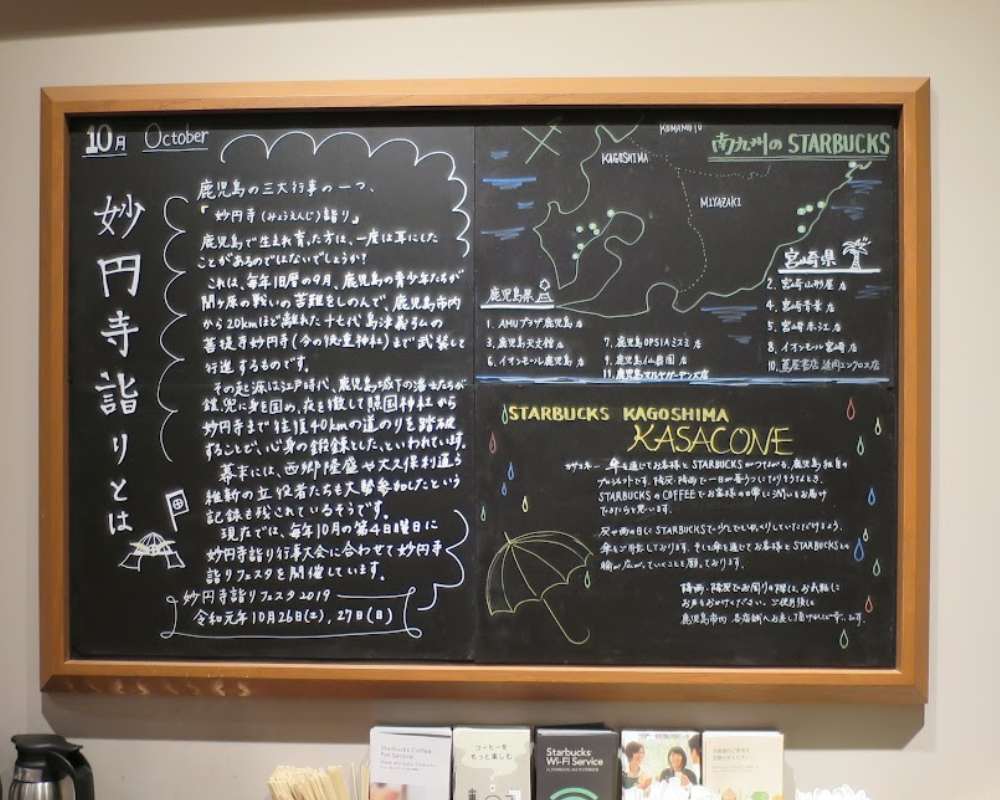 10月 October
妙円寺詣りとは
鹿児島の三大行事の一つ、
「妙円寺(みょうえんじ)詣り」
鹿児島で生まれ育った方は、一度は耳にした
ことがあるのではないでしょうか?
これは、毎年旧暦の9月、鹿児島の青少年たちが
関ヶ原の戦いの苦難をしのんで、鹿児島市内
から20kmほど離れた十七代島津義弘の
菩提寺妙円寺(今の徳重神社)まで武装して
行進するものです。
その起源は江戸時代、鹿児島城下の藩士たちが
鎧兜に身を固め、夜を徹して照国神社から
妙円寺まで往復40kmの道のりを踏破
することで、心身の鍛錬とした、といわれています。
幕末には、西郷隆盛や大久保利通ら
維新の立役者たちも大勢参加したという
記録も残されているそうです。
現在では、毎年10月の第4日曜日に
妙円寺詣り行事大会に合わせて妙円寺
詣りフェスタを開催しています。
妙円寺詣りフェスタ2019
令和元年10月26日(土),27日(日)
南九州の STARBUCKS
KUMAMOTO
KAGOSHIMA
MIYAZAKI
鹿児島県
1. AMUプラザ鹿児島店
3. 鹿児島天文館店
6. イオンモール鹿児島店
7. 鹿児島OPSIAミスミ店
9. 鹿児島仙巌園店
11. 鹿児島マルヤガーデンズ店
宮崎県
2. 宮崎山形屋店
4. 宮崎青葉店
5. 宮崎赤江店
8. イオンモール宮崎店
10. 蔦屋書店 延岡エンクロス店
STARBUCKS KAGOSHIMA
KASACONE
傘を通じてお客様とSTARBUCKSがつながる、鹿児島独自の
プロジェクトです。
STARBUCKSのCOFFEEでお客様の
できたらと思います。
灰や雨の日にSTARBUCKSで少しでもゆっくりしていただけるよう、
傘をご用意しております。そして傘を通じてお客様とSTARBUCKSとの
輪が広がっていくことを願っております。
降雨・降灰でお困りの際は、お気軽に
お声をおかけください。ご使用後は
鹿児島市内 各店舗へお戻し頂ければ幸いです。
Starbucks Coffee
Pot Service
コーヒーを
もっと楽しむ
Starbucks
Wi-Fi Service